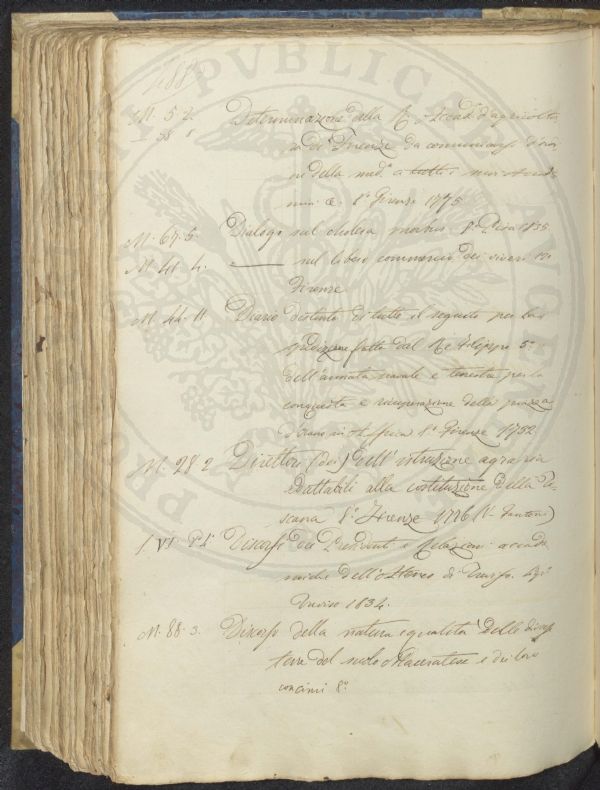 188
M. 5 2. Determinazione della R. Accad. d'agricoltu
ra di Firenze da comunicarsi
della med.a a tutti i
8.o Firenze 1775
M. 67. 5. Dialogo sul cholera morbus 8.o Pisa 1835
M. 41. 4. ——— sul libero commercio dei viveri
Firenze
M. 44. 11 Diario distinto di tutto il seguito per la
spedizione fatta dal Re Filippo 5.o
dell'armata navale e terrestre per la
conquista e recuperazione della piazza
d'Orano in Affrica 8.o Firenze 1732
M. 28. 2 Direttori (dei) dell'istruzione agraria
adattabili alla costituzione della To
scana 8.o Firenze (V. Fantoni)
Discorsi dei Presidenti e Relazioni accade
miche dell'Ateneo di Treviso
Treviso 1834.
M. 88. 3. Discorso della natura e qualità delle diverse
terre del suolo Maceratese e dei loro
concimi 8.o
PUBLICAE